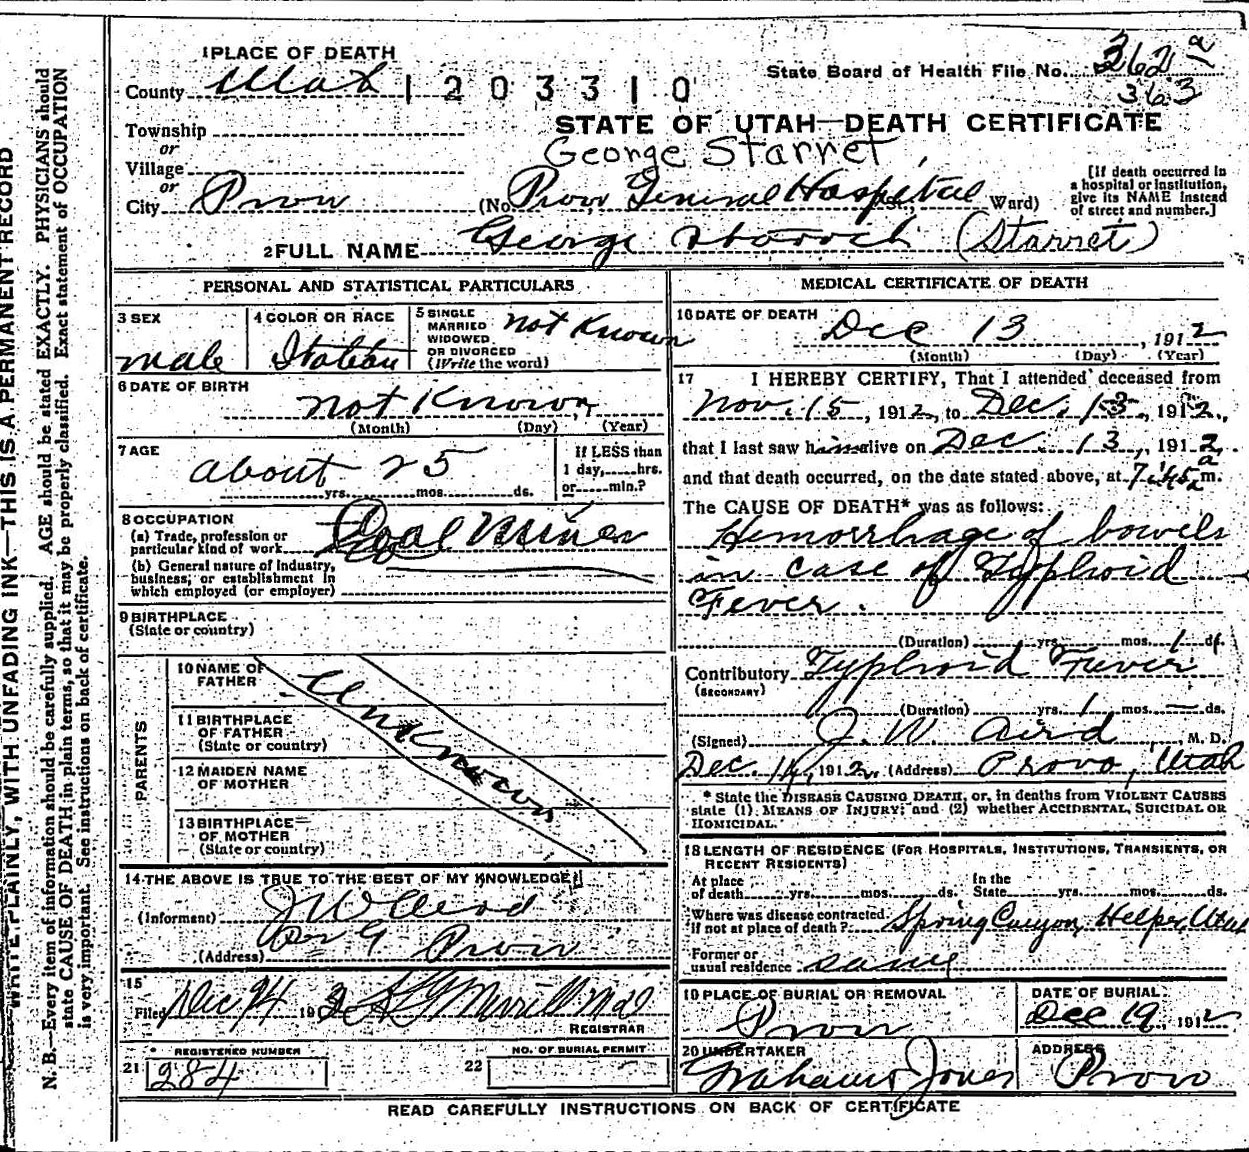 WRITE PLAINLY, WITH UNFADING INK—THIS IS A PERMANENT RECORD
N. B.—Every item of information should be carefully supplied. AGE should be stated EXACTLY. PHYSICIANS should
state CAUSE OF DEATH in plain terms, so that it may be properly classified. Exact statement of OCCUPATION
is very important. See instructions on back of certificate.
1 PLACE OF DEATH
County Utah 1203310
State Board of Health File No. 362 a
363
STATE OF UTAH—DEATH CERTIFICATE
Township
or
Village
or
City Provo
George Starret
(No. Provo General Hospital St. Ward)
[If death occurred in
a hospital or institution,
give its NAME instead
of street and number.]
2 FULL NAME George (Starret)
PERSONAL AND STATISTICAL PARTICULARS
3 SEX
male
4 COLOR OR RACE
Italian
5 SINGLE
MARRIED
WIDOWED
OR DIVORCED
(Write the word)
not Known
6 DATE OF BIRTH
not Known
(Month) (Day) (Year)
7 AGE
about 25
yrs. mos. ds.
If LESS than
1 day, hrs.
or min.?
8 OCCUPATION
(a) Trade, profession or
particular kind of work
Coal Miner
(b) General nature of industry,
business, or establishment in
which employed (or employer)
9 BIRTHPLACE
(State or country)
PARENTS
10 NAME OF
FATHER
11 BIRTHPLACE
OF FATHER
(State or country)
12 MAIDEN NAME
OF MOTHER
13 BIRTHPLACE
OF MOTHER
(State or country)
Unknown
14 THE ABOVE IS TRUE TO THE BEST OF MY KNOWLEDGE
(Informant) J W Aird
(Address) Provo
15
Filed Dec 191 Merrill
REGISTRAR
REGISTERED NUMBER
21 284
NO. OF BURIAL PERMIT
22
MEDICAL CERTIFICATE OF DEATH
16 DATE OF DEATH
Dec 13, 1912
(Month) (Day) (Year)
17 I HEREBY CERTIFY, That I attended deceased from
Nov. 15, 1912, to Dec. 13, 1912,
that I last saw him alive on Dec. 13, 1912,
and that death occurred, on the date stated above, at 7:45 a m.
The CAUSE OF DEATH* was as follows:
Hemorrhage of bowels
in case of Typhoid
Fever.
(Duration) yrs. mos. 1 ds.
Contributory Typhoid Fever
(SECONDARY)
(Duration) yrs. 1 mos. — ds.
(Signed) J. W. Aird, M. D.
Dec. 14, 1912. (Address) Provo, Utah
* State the DISEASE CAUSING DEATH, or, in deaths from VIOLENT CAUSES
state (1) MEANS OF INJURY; and (2) whether ACCIDENTAL, SUICIDAL OR
HOMICIDAL.
18 LENGTH OF RESIDENCE (FOR HOSPITALS, INSTITUTIONS, TRANSIENTS, OR
RECENT RESIDENTS)
At place
of death yrs. mos. ds.
In the
State yrs. mos. ds.
Where was disease contracted,
if not at place of death? Spring Canyon, Helper, Utah
Former or
usual residence same
19 PLACE OF BURIAL OR REMOVAL
Provo
DATE OF BURIAL
Dec 19, 1912
20 UNDERTAKER
Jones
ADDRESS
Provo
READ CAREFULLY INSTRUCTIONS ON BACK OF CERTIFICATE